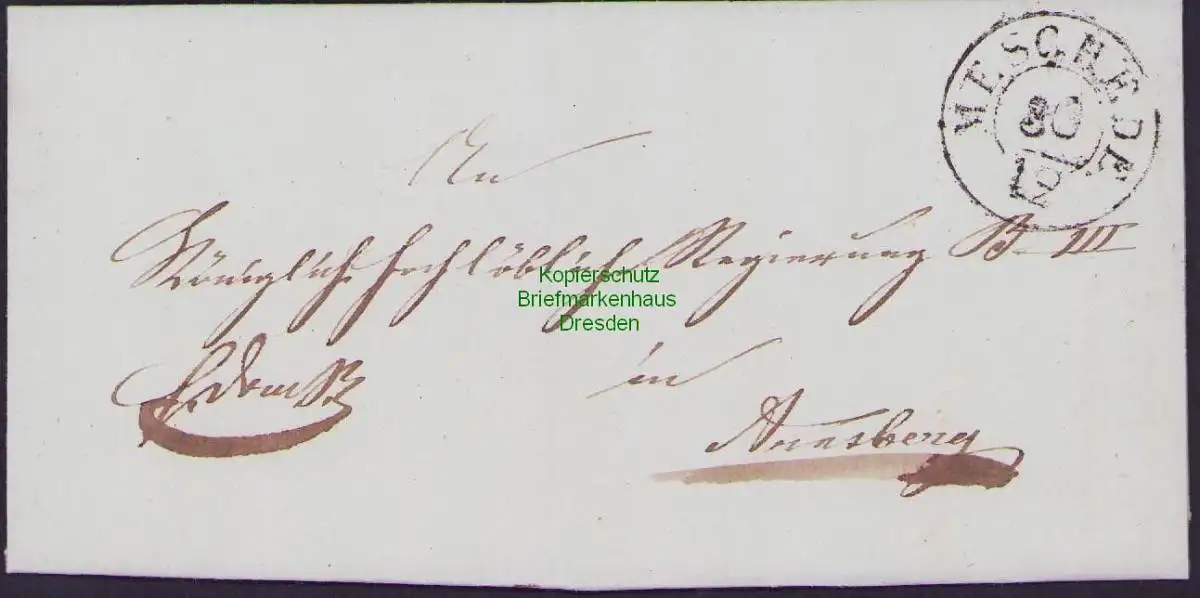 MESCHEDE
30
12
An
Königliche hochlöbliche Regierung B. III
Kopierschutz
Briefmarkenhaus
Dresden
in
Arnsberg